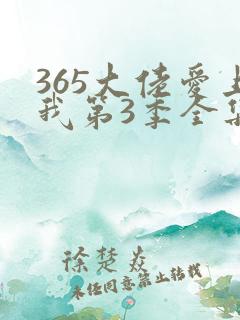 365大佬爱上
我第3季全集
徐楚焱
未经同意禁止转载